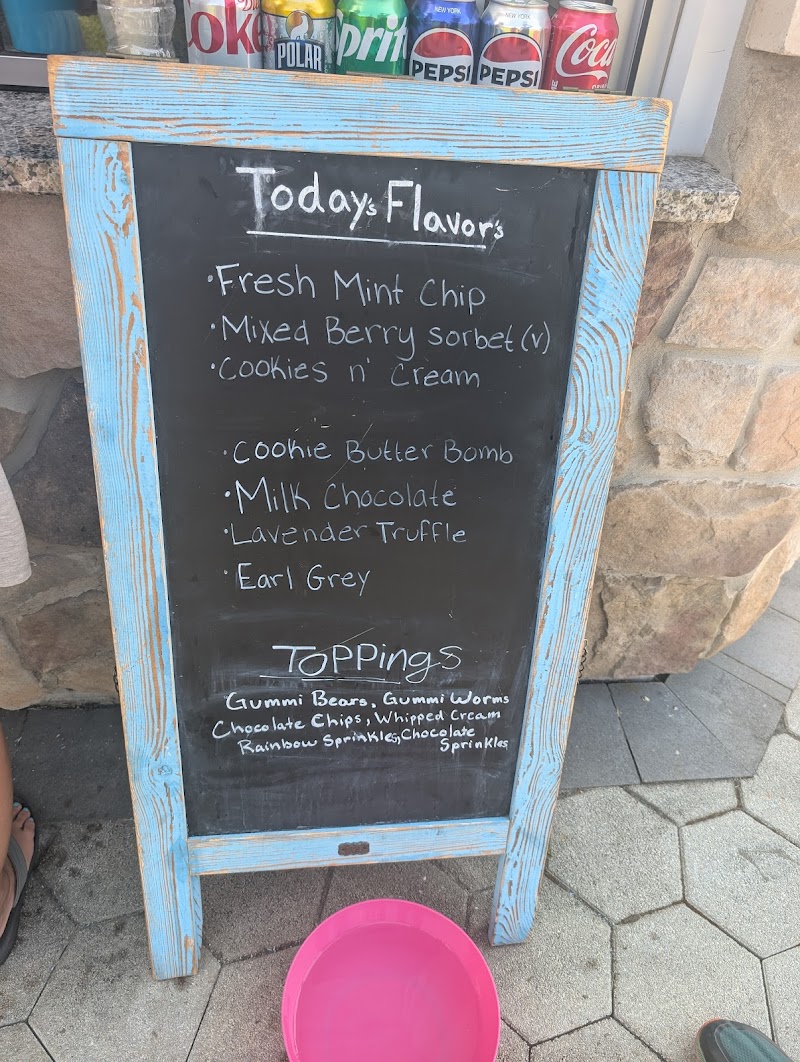 Coke
POLAR
Sprit
NEW YORK
PEPSI
NEW YORK
PEPSI
Coca
Today's Flavor's
·Fresh Mint Chip
·Mixed Berry sorbet (v)
·Cookies n' Cream
·Cookie Butter Bomb
·Milk Chocolate
·Lavender Truffle
·Earl Grey
Toppings
Gummi Bears, Gummi Worms
Chocolate Chips, Whipped Cream
Rainbow Sprinkles, Chocolate
Sprinkles